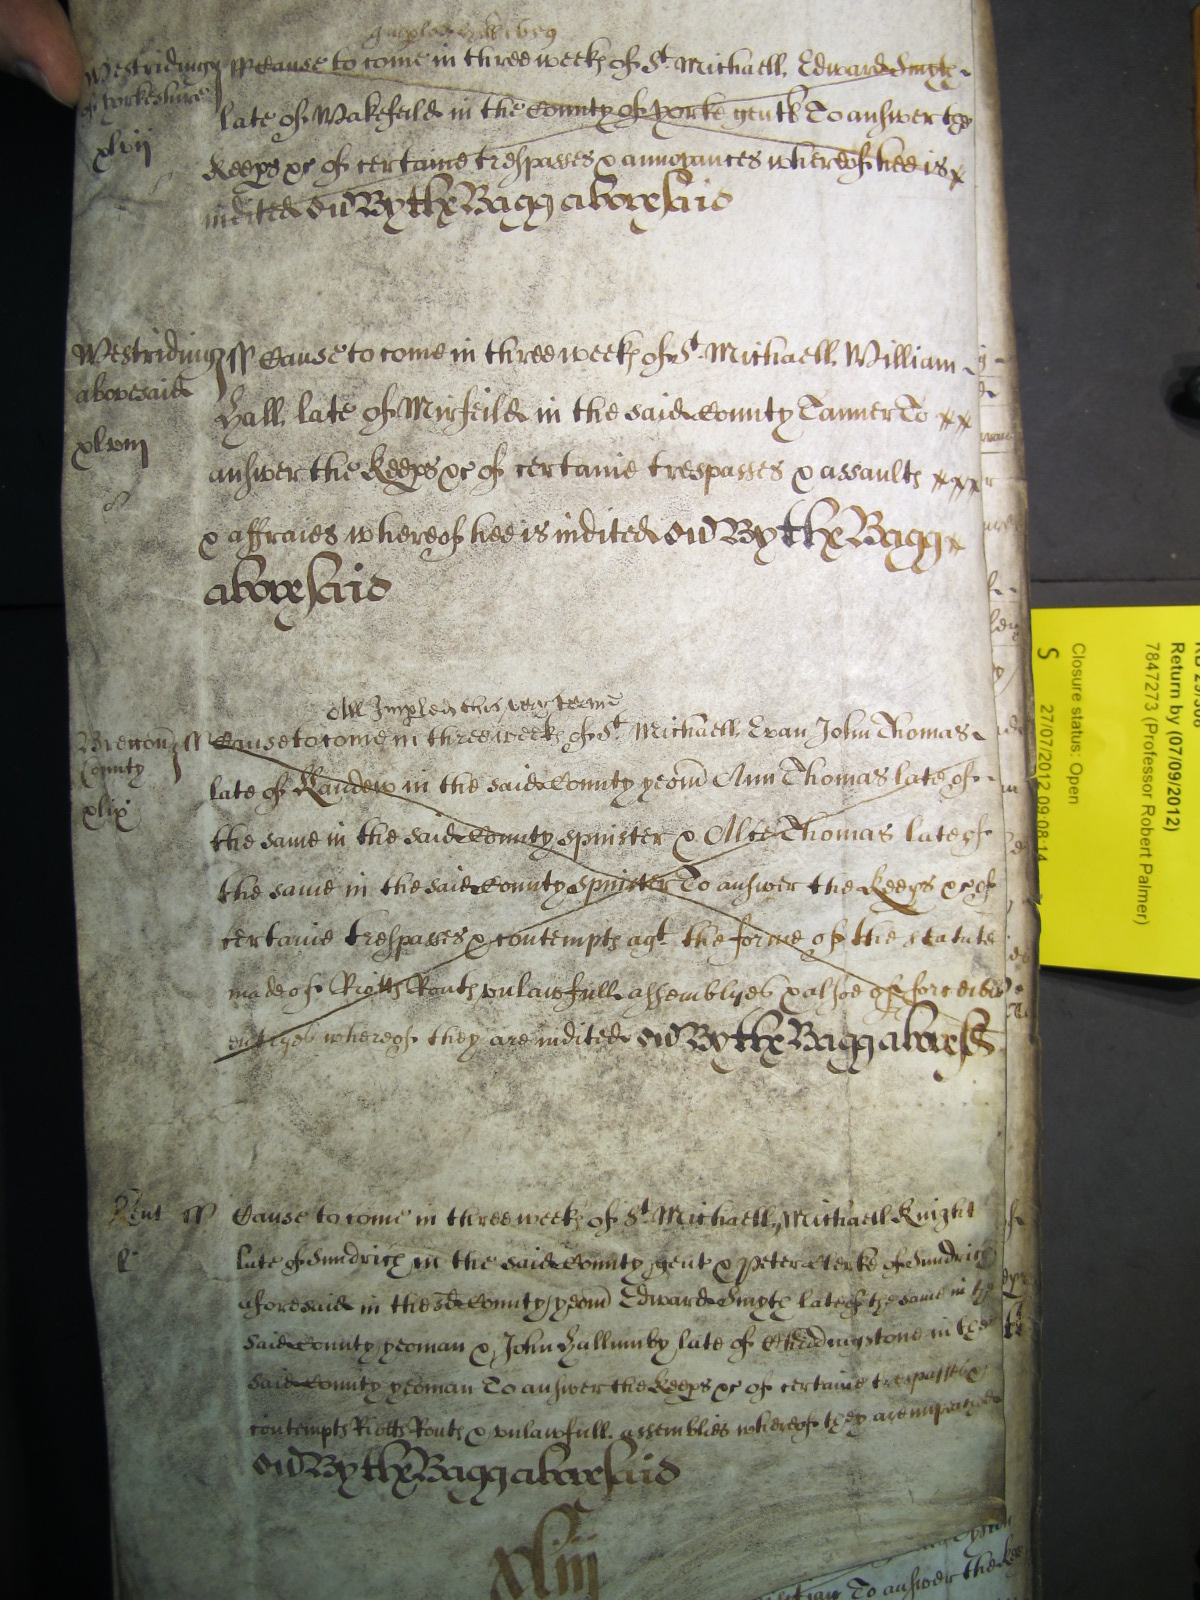 Westriding ss Cause to come in three weeks of St. Michaell. Edward Smyth
of Yorkeshire late of Wakefeild in the County of Yorke gentl To answer the
xlvij Keeps &c of certaine trespasses & annoyances whereof hee is
indited on By the Bagg abovesaid
Westriding ss Cause to come in three weeks of St. Michaell. William
abovesaid Hall late of Mirfeild in the said County Tanner To
xlviij answer the Keeps &c of certaine trespasses & assaults
& affraies whereof hee is indited on By the Bagg
abovesaid
All Impled this very terme
Brecon ss Cause to come in three weeks of St. Michaell. Evan John Thomas
County late of Llandew in the said County yeom Ann Thomas late of
xlix the same in the said County spinster & Alce Thomas late of
the same in the said County Spinster To answer the Keeps &c of
certaine trespasses & contempts agt. the forme of the statute
made of Riotts Routs unlawfull assemblyes & alsoe of forcible
entryes whereof they are indited on By the Bagg aboves
Kent ss Cause to come in three weeks of St. Michaell. Michaell Knight
l late of Sundrich in the said County gent & Peter Clerke of Sundrich
aforesaid in the sd County yeom Edward Smyth late of the same in the
said County yeoman & John Hallumby late of Chiddingstone in the
said County yeoman To answer the Keeps &c of certaine trespasses
contempts Riotts Routs & unlawfull assemblies whereof they are impeached
on By the Bagg abovesaid
xliij
To answer the Kee
Closure status: Open
S 27/07/2012 09:08:14
Return by (07/09/2012)
7847273 (Professor Robert Palmer)